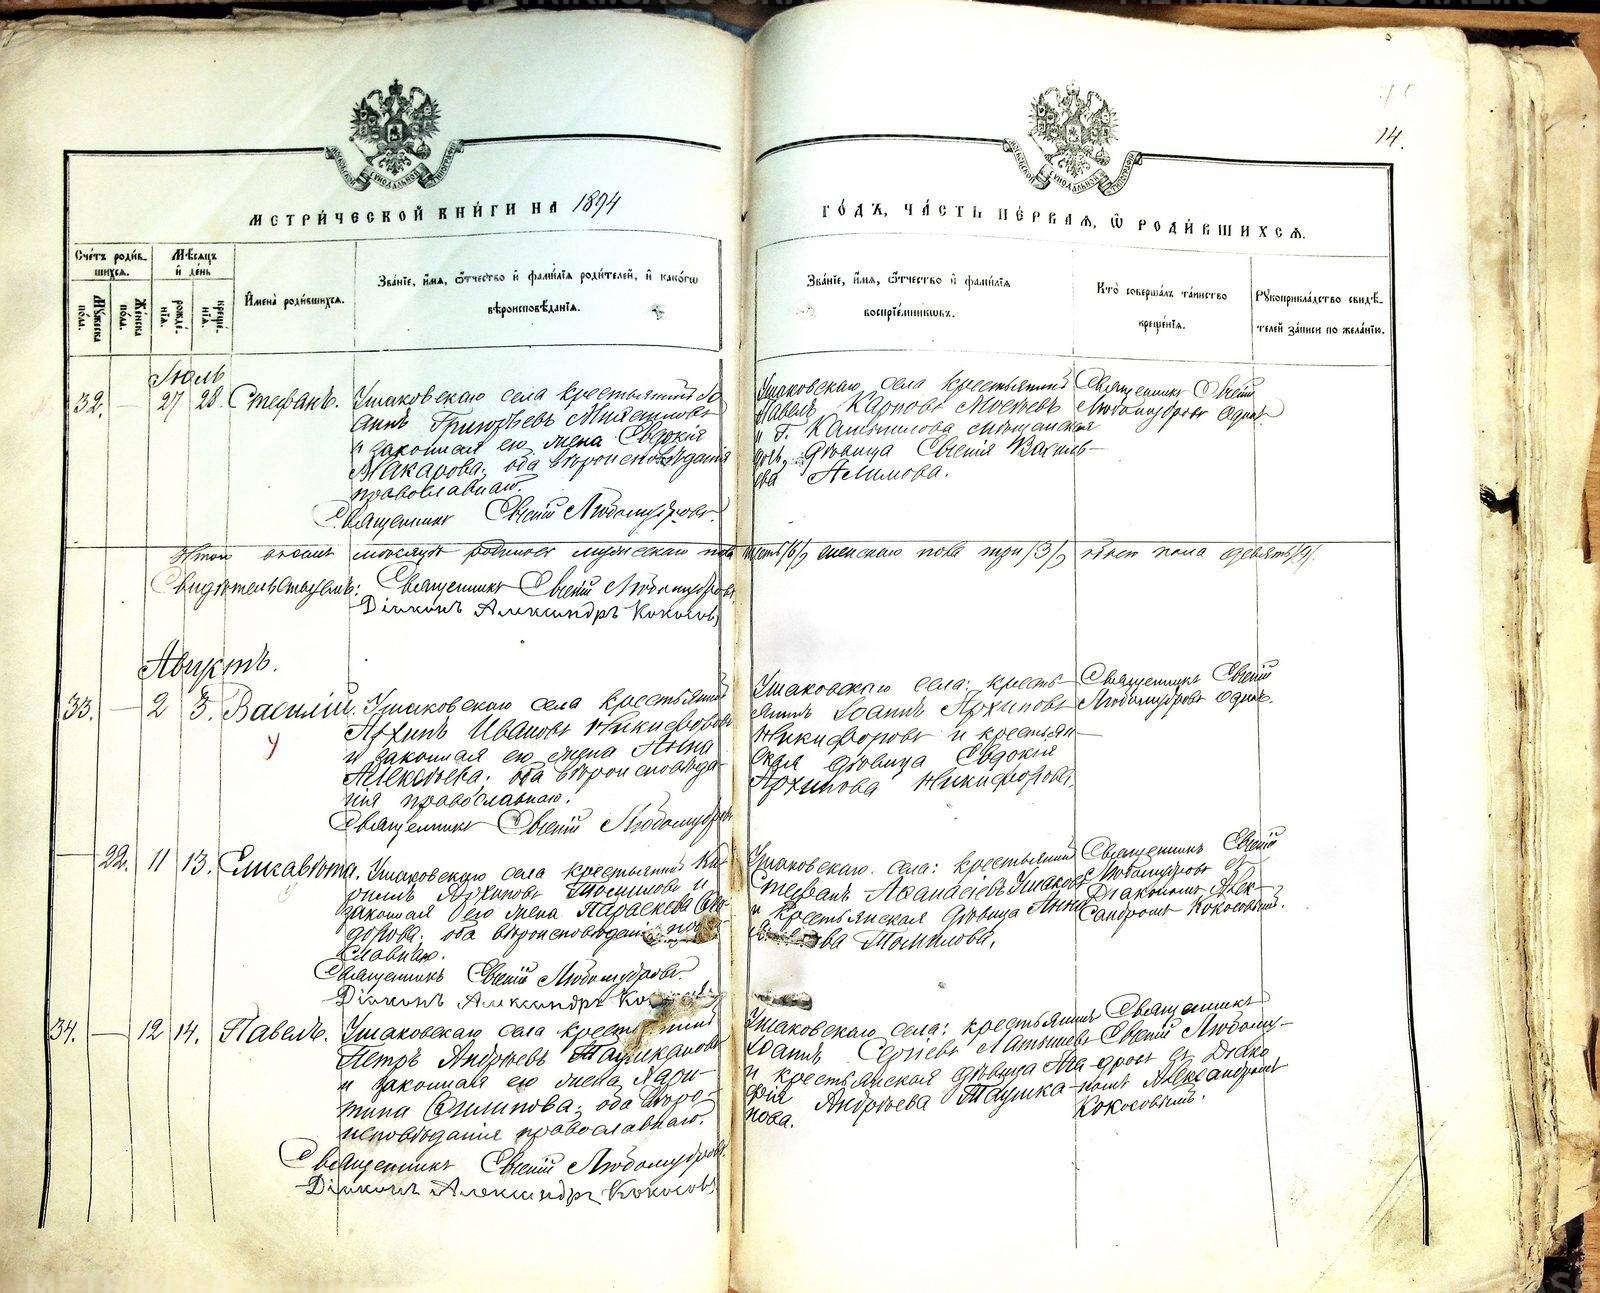 14.
МЕТРИЧЕСКОЙ КНИГИ НА 1894
ГОДЪ, ЧАСТЬ ПЕРВАЯ, Ѿ РОДИВШИХСЯ.
Счетъ родив-
шихся.
Мужеска
пола.
Женска
пола.
Мѣсяцъ
и день
рожде-
нія.
креще-
нія.
Имена родившихся.
Званіе, имя, ѿтчество и фамилія родителей, и какогѡ
вѣроисповѣданія.
Званіе, имя, ѿтчество и фамилія
воспріемниковъ.
Кто совершалъ таинство
крещенія.
Рукоприкладство свидѣ-
телей записи по желанію.
Іюль
32. — 27 28. Стефанъ.
Ушаковскаго села крестьянинъ Іо
аннъ Григорьевъ
и законная его жена Евдокія
Макарова; оба вѣроисповѣданія
православнаго.
Священникъ Евгеній Любомудровъ.
Ушаковскаго села крестьянинъ
Павелъ Карповъ
и г. Камышлова мѣщанская
дочь, дѣвица Евгенія Василь-
ева Алимова.
Священникъ Евгеній
Любомудровъ одинъ.
Итого въ іюлѣ мѣсяцѣ родилось мужескаго пола шесть /6/, женскаго пола три /3/, обоего пола девять /9/.
Свидѣтельствуемъ: Священникъ Евгеній Любомудровъ.
Діаконъ Александръ Кокосовъ
Августъ.
33. — 2 3. Василій.
Ушаковскаго села крестьянинъ
Архипъ Ивановъ Никифоровъ
и законная его жена Анна
Алексѣева; оба вѣроисповѣда-
нія православнаго.
Священникъ Евгеній Любомудровъ
Ушаковскаго села: кресть-
янинъ Іоаннъ Архиповъ
Никифоровъ и крестьян-
ская дѣвица Евдокія
Архипова Никифорова.
Священникъ Евгеній
Любомудровъ одинъ.
— 22. 11 13. Елисавета.
Ушаковскаго села крестьянинъ Ки-
риллъ Архиповъ Томиловъ и
законная его жена Параскева Ѳео-
дорова; оба вѣроисповѣданія право-
славнаго.
Священникъ Евгеній Любомудровъ.
Діаконъ Александръ
Ушаковскаго села: крестьянинъ
Стефанъ Аѳанасіевъ Ушаковъ
и крестьянская дѣвица Анна
Томилова.
Священникъ Евгеній
Любомудровъ съ
Діакономъ Алек-
сандромъ Кокосовымъ.
34. — 12 14. Павелъ.
Ушаковскаго села крестьянинъ
Петръ Андреевъ Таушкановъ
и законная его жена Хари-
тина Филипова; оба вѣро-
исповѣданія православнаго.
Священникъ Евгеній Любомудровъ.
Діаконъ Александръ Кокосовъ
Ушаковскаго села: крестьянинъ
Іоаннъ Сергіевъ Латышевъ
и крестьянская дѣвица Ага-
фія Андреева Таушка-
нова.
Священникъ
Евгеній Любому-
дровъ съ Діако
номъ Александромъ
Кокосовымъ.